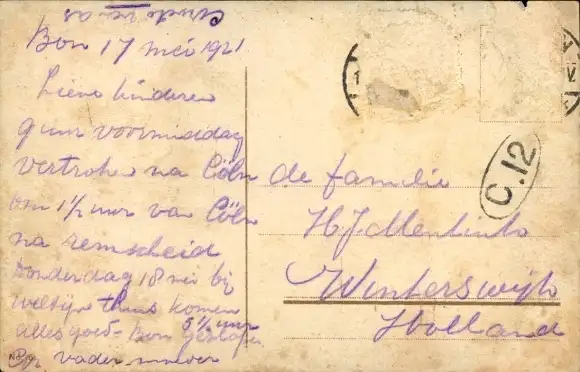 Bon 17 mei 1921
Lieve kinderen
9 uur voormiddag
vertroken na Cöln
om 1½ uur van Cöln
na remscheid
donderdag 18 mei bij
thuis komen
alles goed - Bon
5½ uur
vader moeder
de familie
Winterswijk
Holland
C.12